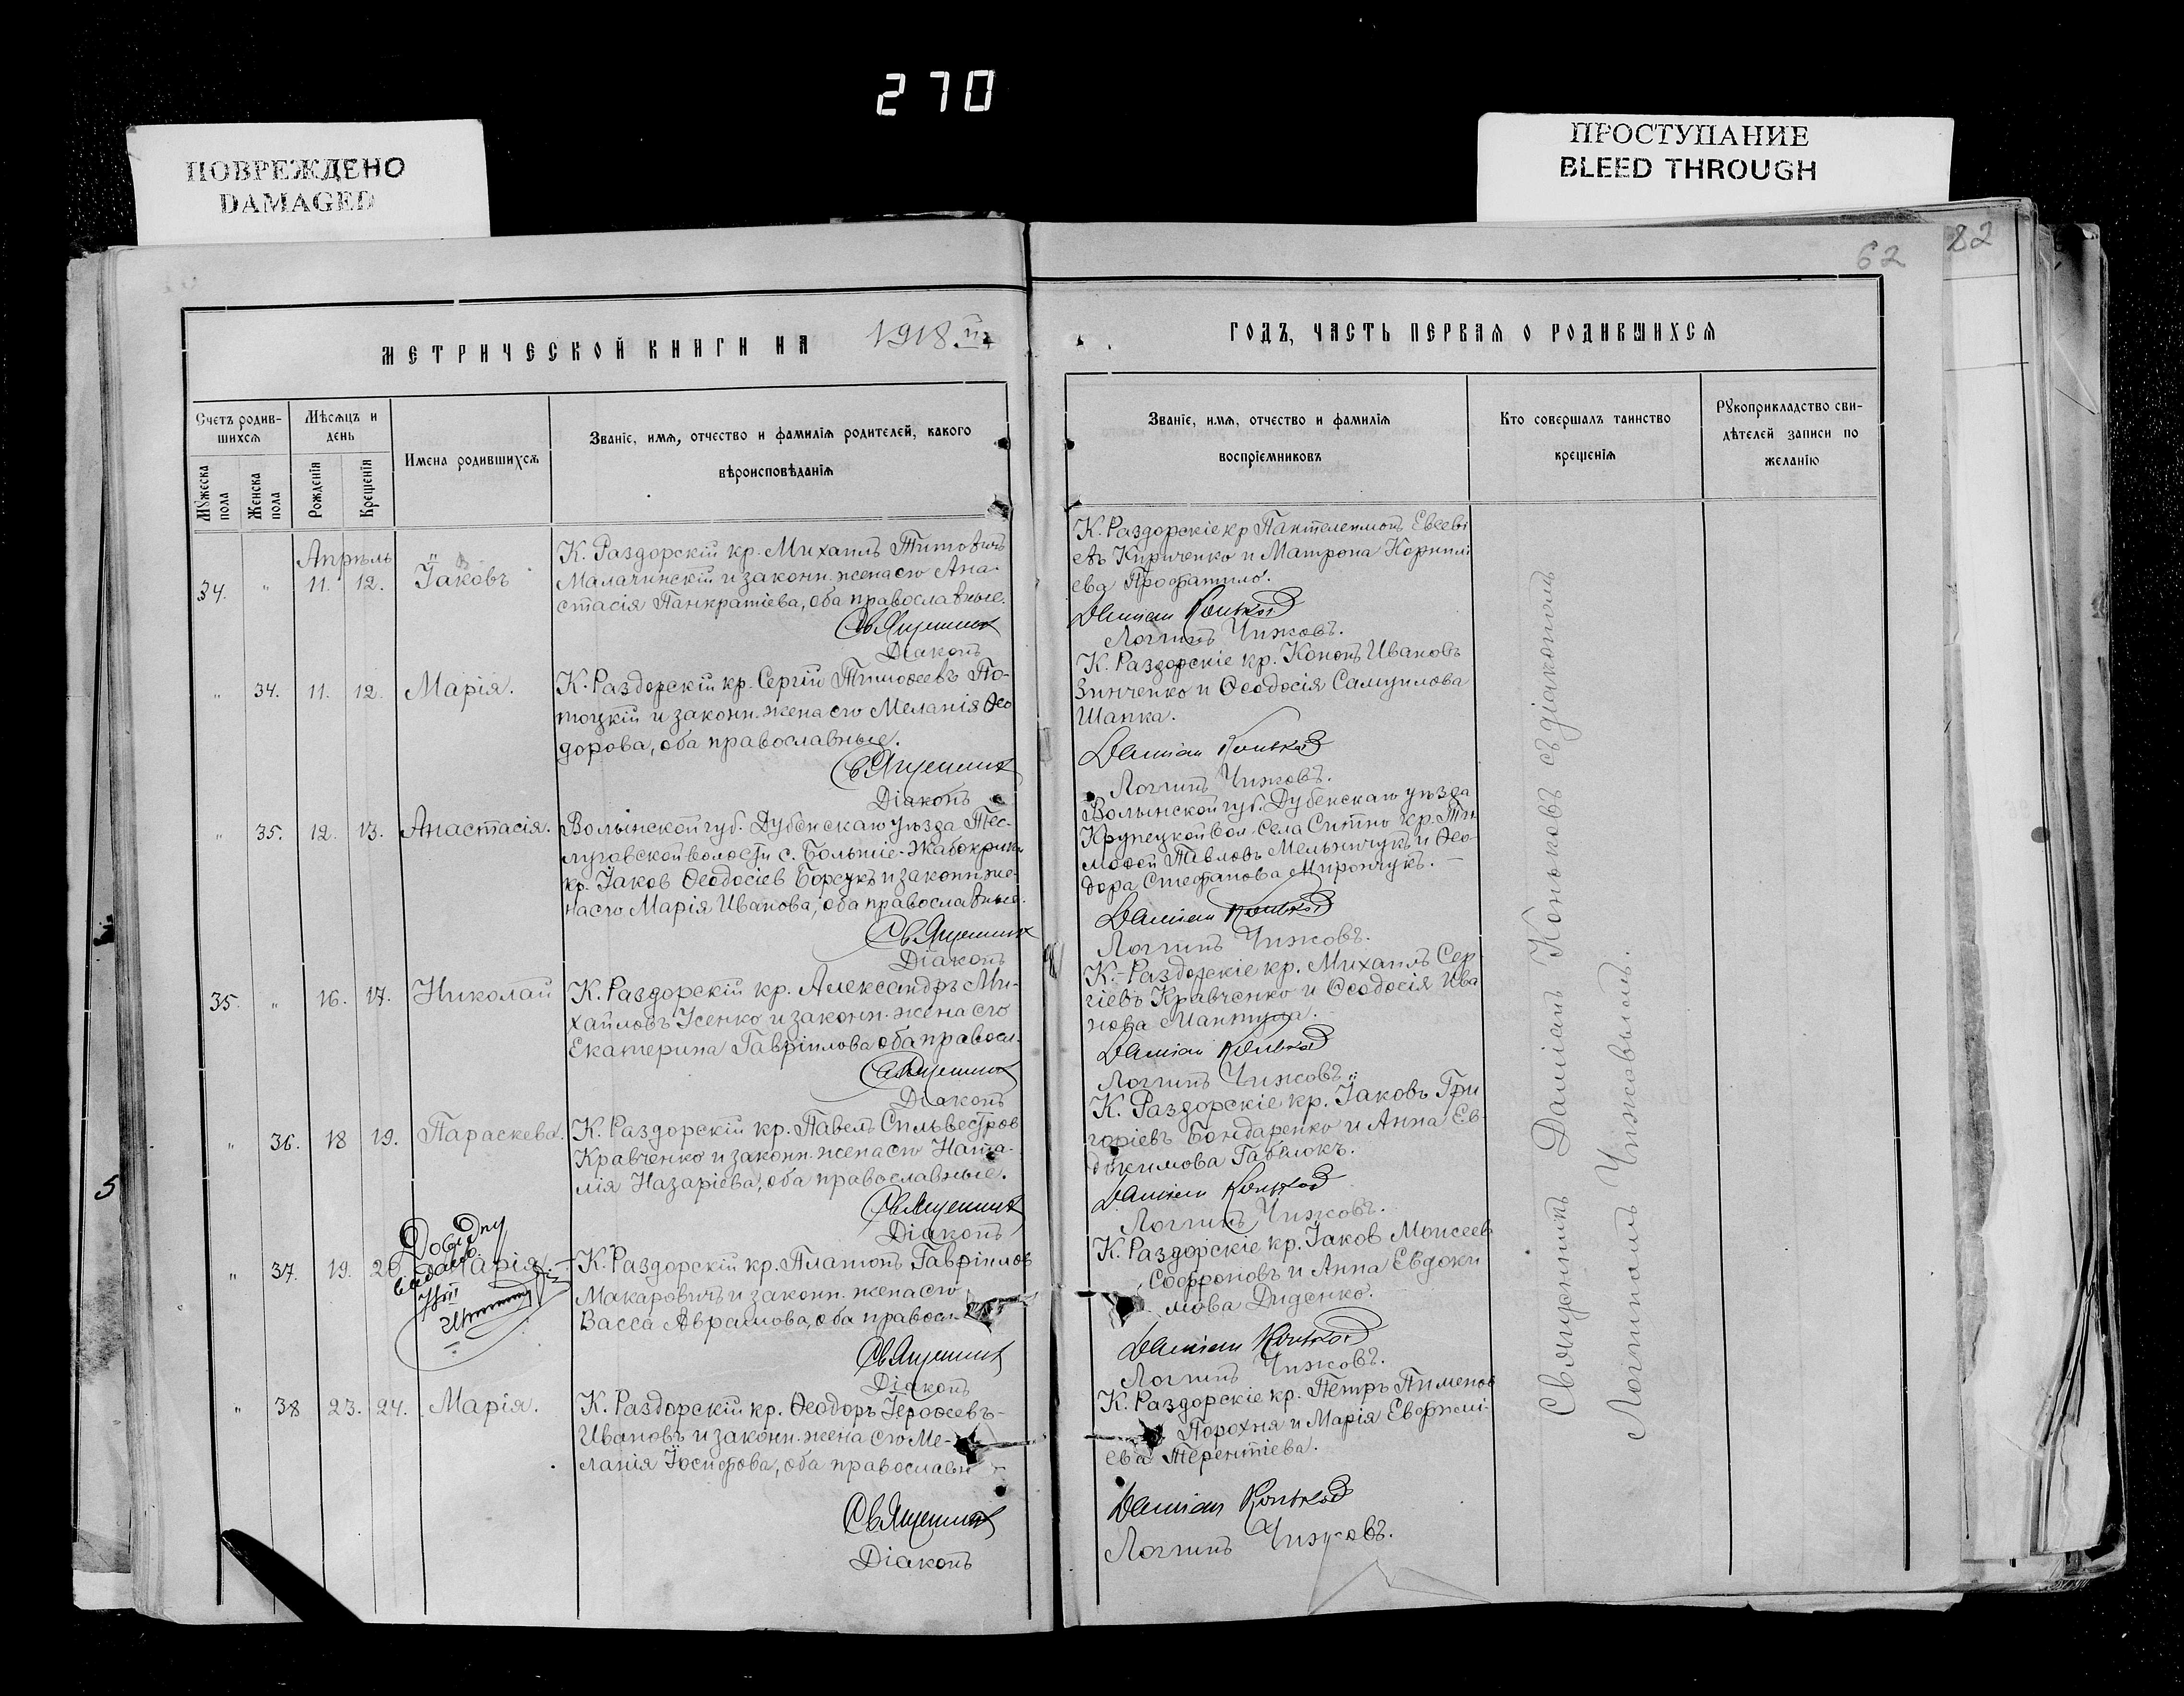 270
ПОВРЕЖДЕНО
DAMAGED
ПРОСТУПАНИЕ
BLEED THROUGH
62
82
МЕТРИЧЕСКОЙ КНИГИ НА 1918
ГОДЪ, ЧАСТЬ ПЕРВАЯ О РОДИВШИХСЯ
Счетъ родив-
шихся
Мѣсяцъ и
день
Имена родившихся
Званіе, имя, отчество и фамилія родителей, какого
вѣроисповѣданія
Мужеска
пола
Женска
пола
Рожденія
Крещенія
Званіе, имя, отчество и фамилія
воспріемниковъ
Кто совершалъ таинство
крещенія
Рукоприкладство сви-
дѣтелей записи по
желанію
Апрѣль
34. " 11. 12. Іаковъ
К. Раздорскій кр. Михаилъ Титовичъ
Малачинскій и законн. жена его Ана-
стасія Панкратіева, оба православные.
Священник
Діаконъ
К. Раздорскіе кр Пантелеимонъ Евсеві
евъ Кириченко и Матрона Корнилі
ева Профатило.
Damian
Логгинъ Чижовъ.
" 34. 11. 12. Марія.
К. Раздорскій кр. Сергій Тимоѳеевъ По-
тоцкій и законн. жена его Меланія Ѳео
дорова, оба православные.
Священник
Діаконъ
К. Раздорскіе кр. Кононъ Ивановъ
Зинченко и Ѳеодосія Самуилова
Шапка.
Damian
Логгинъ Чижовъ.
" 35. 12. 13. Анастасія.
Волынской губ. Дубенскаго уѣзда Тес-
луговской волости с. Большіе-Жабокрики
кр. Іаков Ѳеодосіев Борсукъ и законн же-
на его Марія Иванова, оба православные.
Священник
Діаконъ
Волынской губ. Дубенскаго уѣзда
Крупецкой вол. Села Ситно кр. Ти
моѳей Павловъ Мельничукъ и Ѳео-
дора Стефанова Мирончукъ. —
Damian
Логгинъ Чижовъ.
35. " 16. 17. Николай
К. Раздорскій кр. Александръ Ми-
хайловъ Усенко и законн. жена его
Екатерина Гавріилова оба правосл.
Священник
Діаконъ
К. Раздорскіе кр. Михаилъ Сер-
гіевъ Кравченко и Ѳеодосія Ива
нова
Damian
Логгинъ Чижовъ.
" 36. 18 19. Параскева.
К. Раздорскій кр. Павелъ Сильвестров
Кравченко и законн. жена его Ната-
лія Назаріева, оба православные.
Священник
Діаконъ
К. Раздорскіе кр. Іаковъ Гри
горіевъ Бондаренко и Анна Ев-
докимова Гавлюкъ.
Damian
Логгинъ Чижовъ.
Довідку
видано
" 37. 19. 20. Марія.
К. Раздорскій кр. Платонъ Гавріилов
Макаровичъ и законн. жена его
Васса Аврамова, оба правосл
Священник
Діаконъ
К. Раздорскіе кр. Іаков Моисеев
Софроновъ и Анна Евдоки
мова Диденко.
Damian
Логгинъ Чижовъ.
" 38 23. 24. Марія.
К. Раздорскій кр. Ѳеодоръ Іероѳеевъ-
Ивановъ и законн. жена его Ме-
ланія Іосифова, оба православн
Священник
Діаконъ
К. Раздорскіе кр. Петръ Пименов
Порохня и Марія Евфимі-
ева Терентіева.
Damian
Логгинъ Чижовъ.
Священникъ Даміанъ Коньковъ съ діакономъ
Логгиномъ Чижовымъ.
5